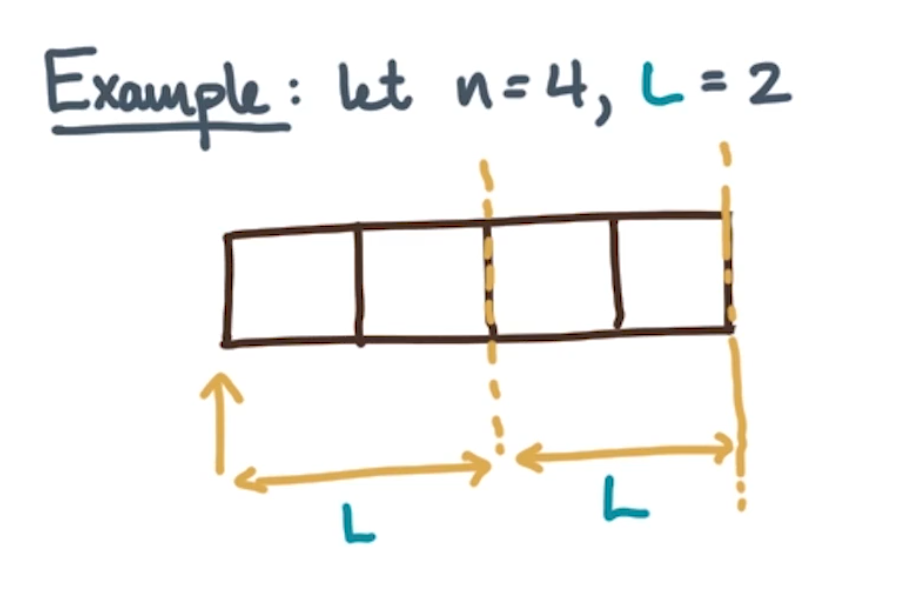 Example: let n=4, L=2
L
L